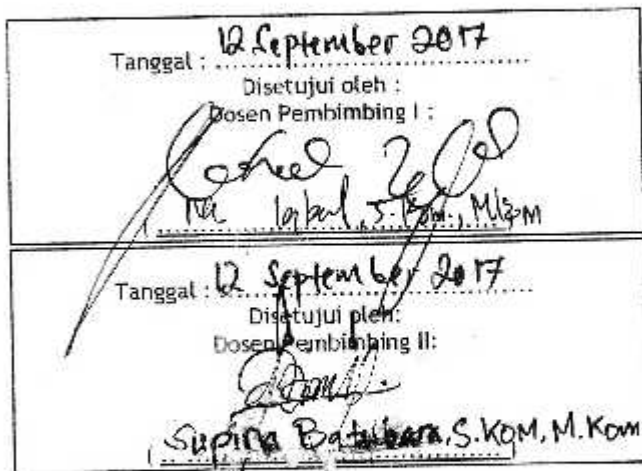 Tanggal : 12 September 2017
Disetujui oleh :
Dosen Pembimbing I :
Iqbal, S.Kom., M.Kom
Tanggal : 12 September 2017
Disetujui oleh:
Dosen Pembimbing II:
( Supina Batubara, S.KOM, M.Kom